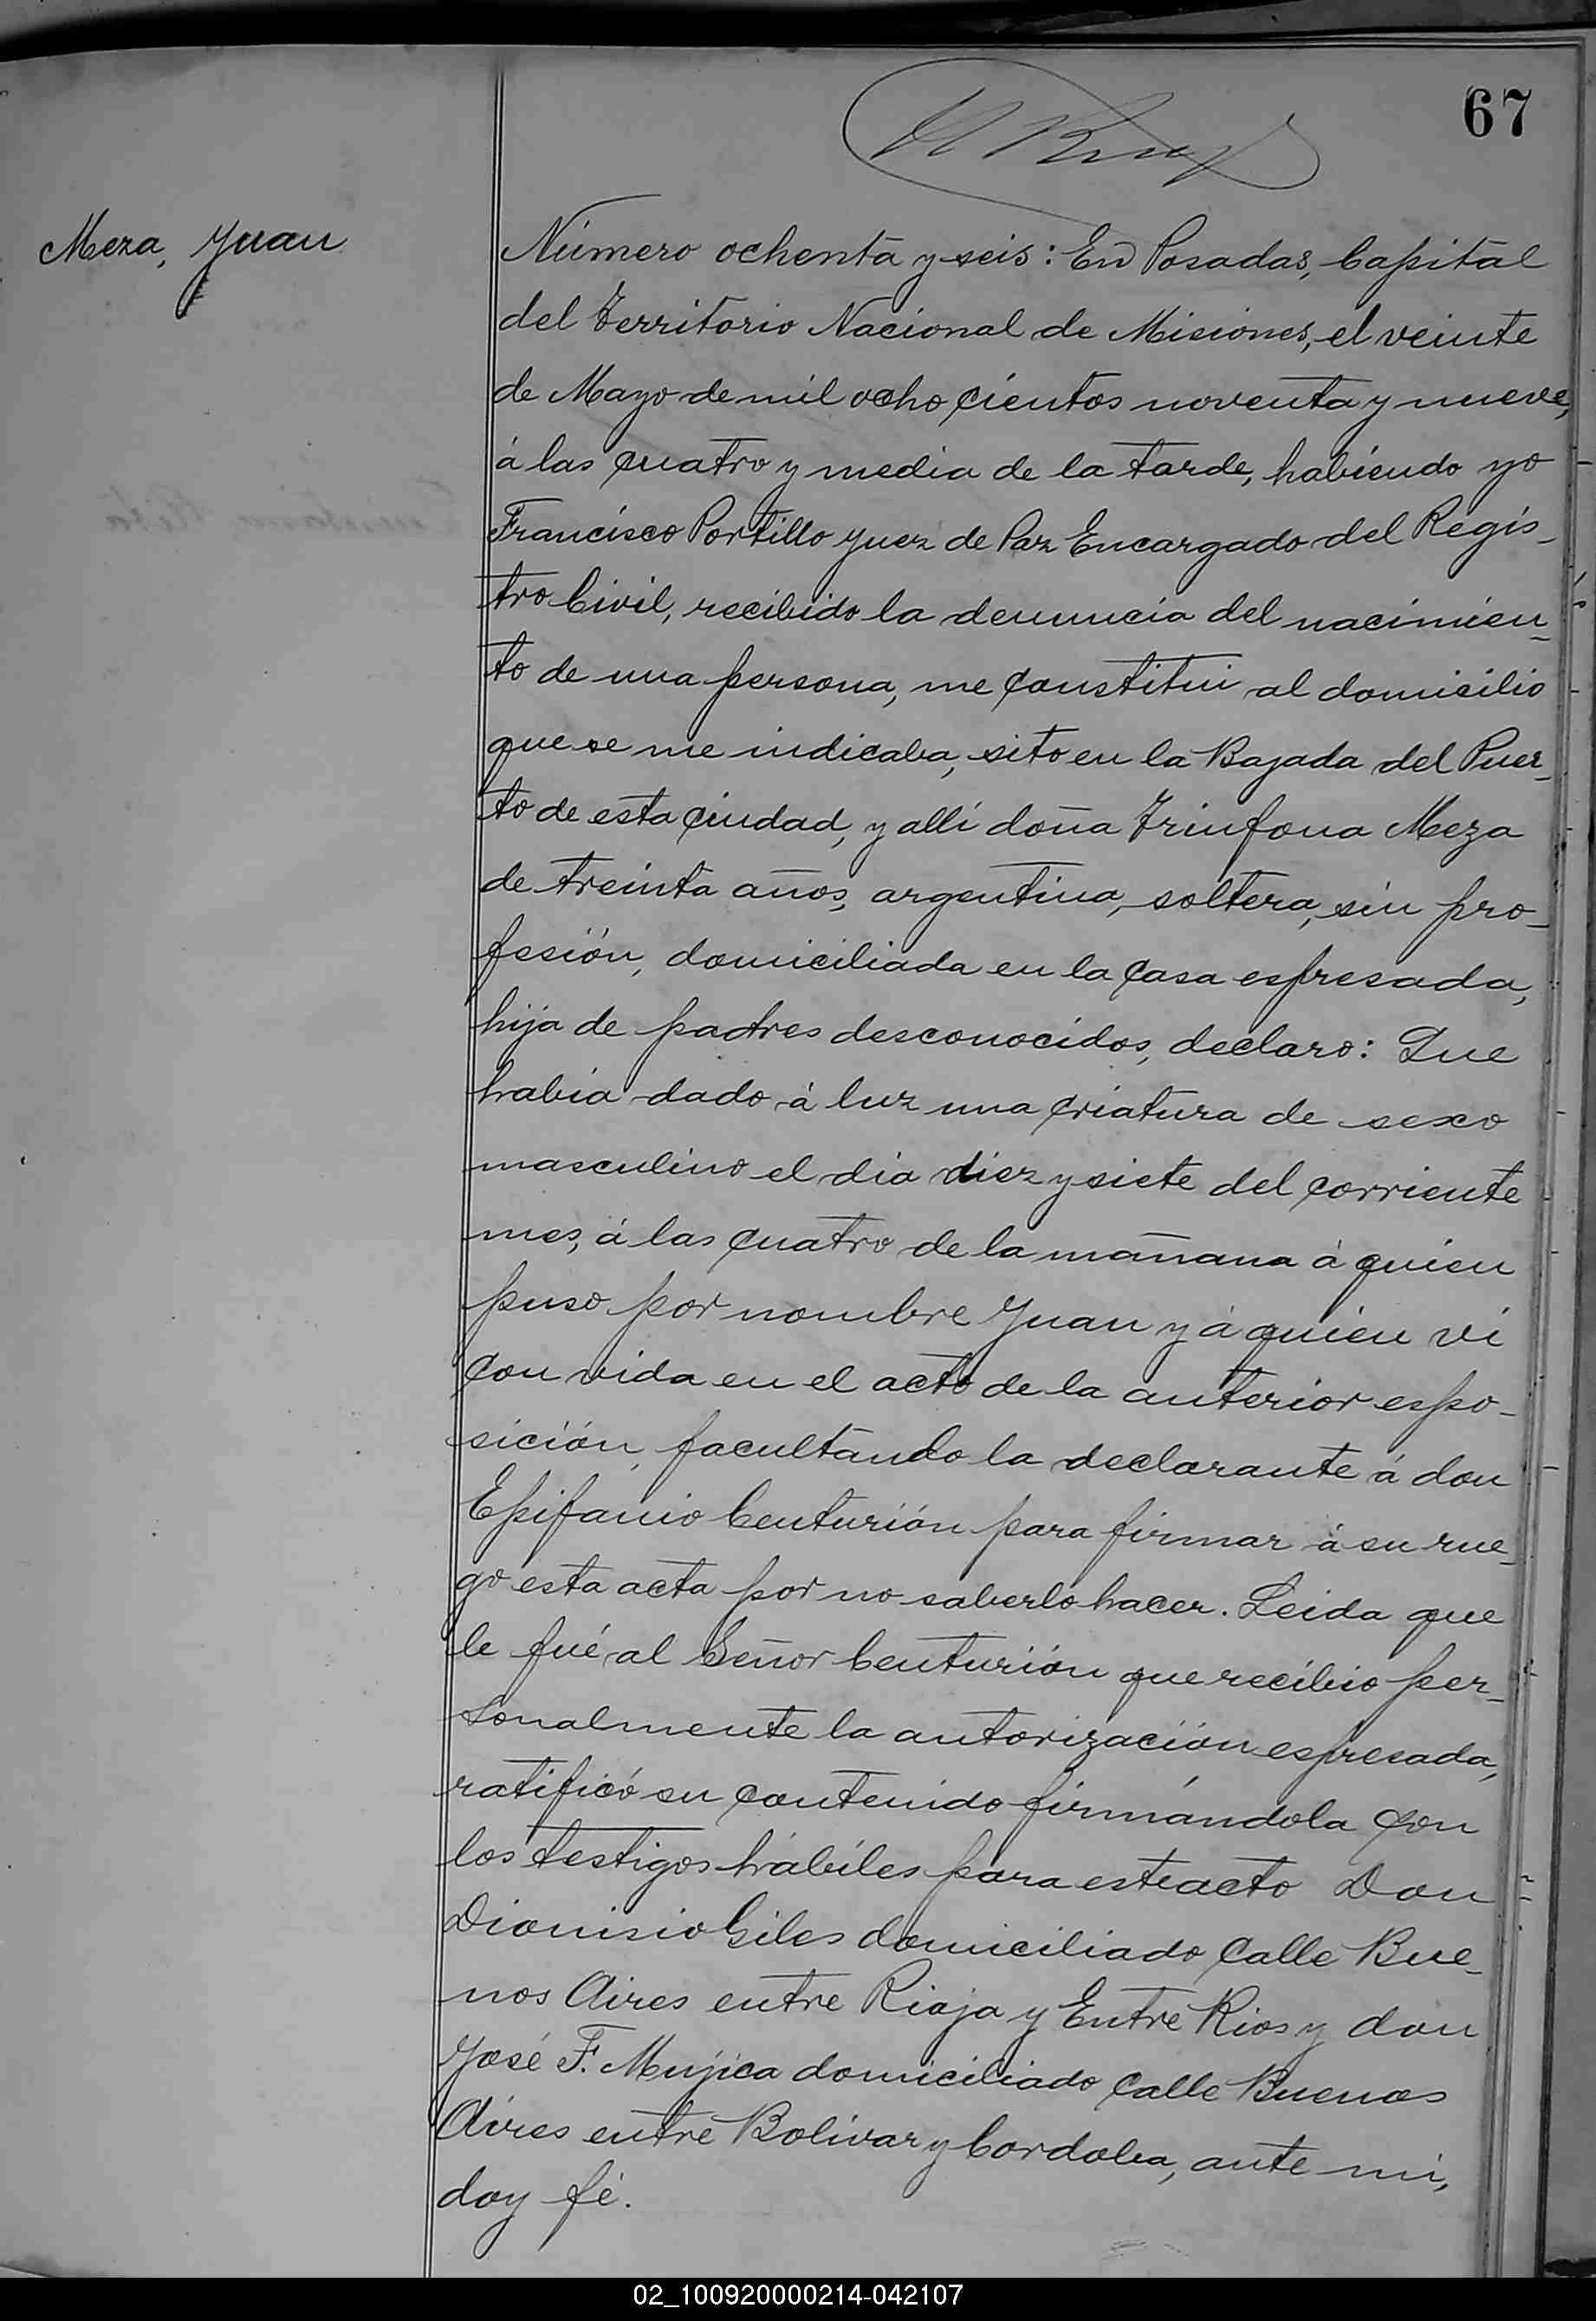 67
Meza, Juan
Número ochenta y seis: En Posadas, Capital
del Territorio Nacional de Misiones, el veinte
de Mayo de mil ocho cientos noventa y nueve,
á las cuatro y media de la tarde, habiendo yo
Francisco Portillo Juez de Paz Encargado del Regis-
tro Civil, recibido la denuncia del nacimien-
to de una persona, me constitui al domicilio
que se me indicaba, sito en la Bajada del Puer-
to de esta ciudad, y alli doña Trinfona Meza
de treinta años, argentina, soltera, sin pro-
fesión, domiciliada en la casa espresada,
hija de padres desconocidos, declaro: Que
habia dado á luz una criatura de sexo
masculino el dia diez y siete del corriente
mes, á las cuatro de la mañana á quien
puso por nombre Juan y á quien vi
con vida en el acto de la anterior espo-
sición, facultando la declarante á don
Epifanio Centurión para firmar á su rue-
go esta acta por no saberlo hacer. Leida que
le fué al Señor Centurión que recibio per-
sonalmente la autorización espresada,
ratificó su contenido firmándola con
los testigos hábiles para este acto Don
Dionisio Giles domiciliado calle Bue-
nos Aires entre Rioja y Entre Rios y don
José F. Mujica domiciliado calle Buenos
Aires entre Bolivar y Cordoba, ante mi,
doy fé.
02_100920000214-042107